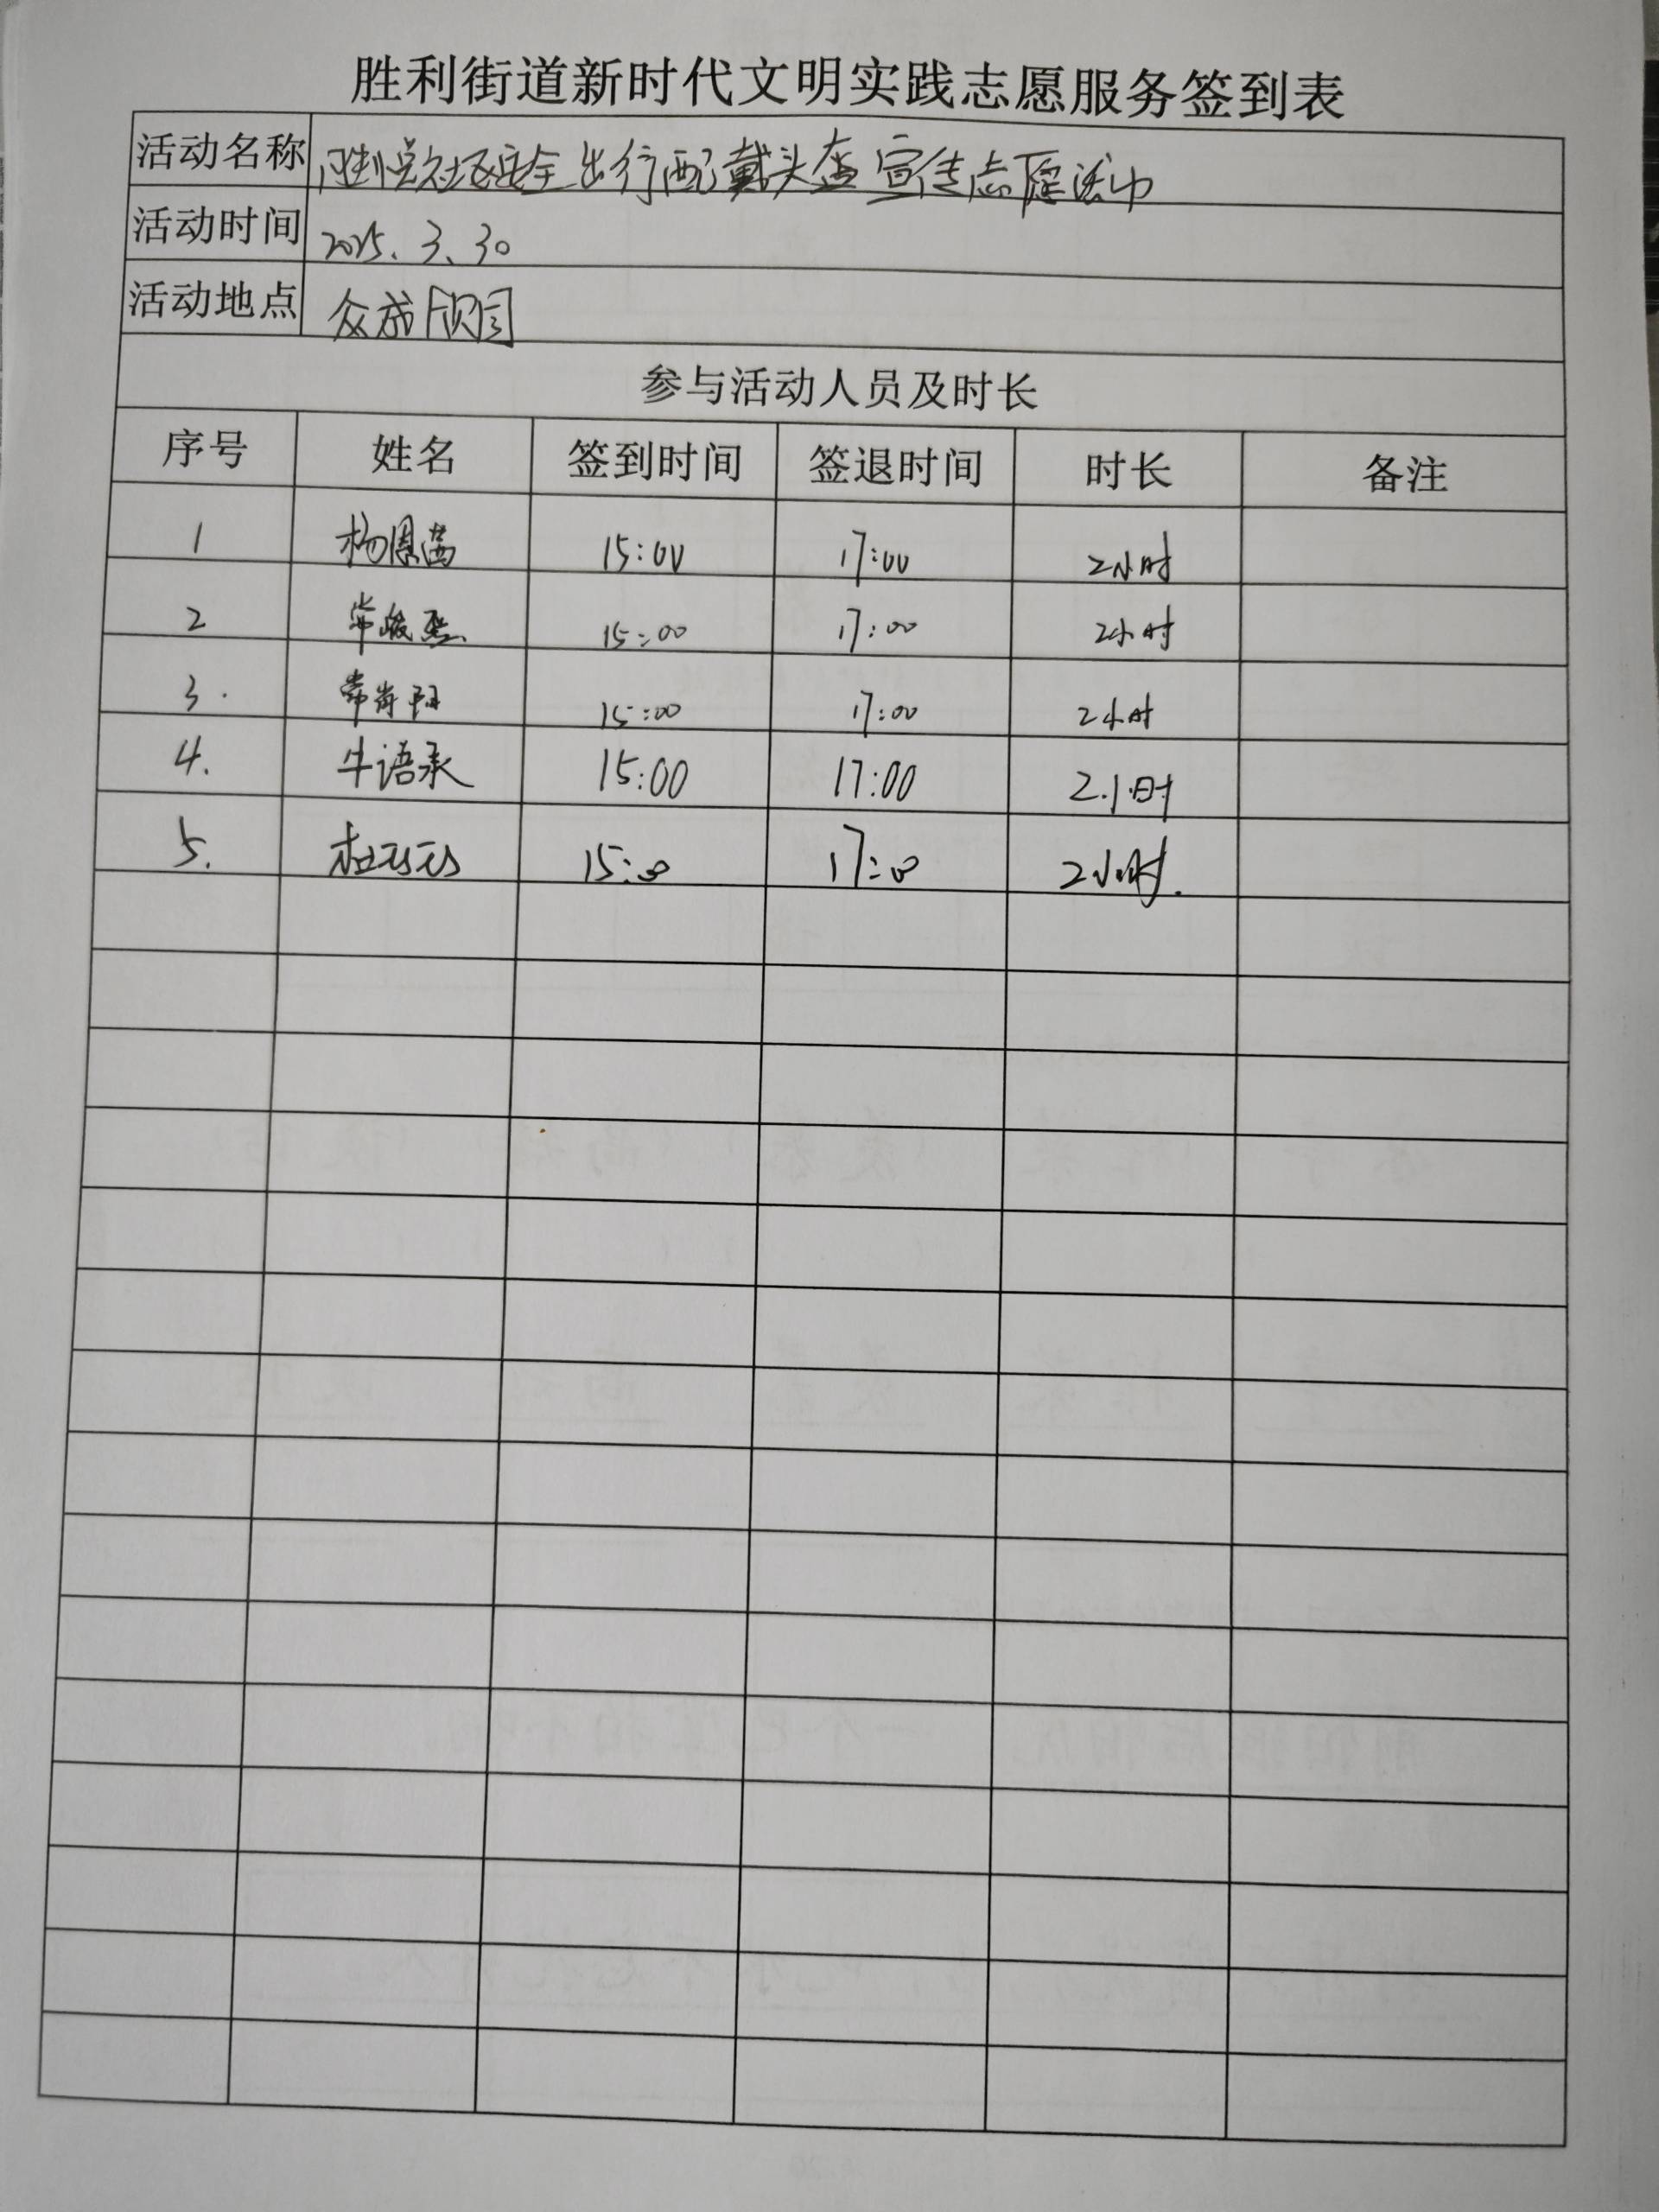 胜利街道新时代文明实践志愿服务签到表
活动名称 社区安全出行配戴头盔宣传志愿活动
活动时间 2025.3.30
活动地点 众成欣园
参与活动人员及时长
序号 姓名 签到时间 签退时间 时长 备注
1 杨恩茜 15:00 17:00 2小时
2 常峻熙 15:00 17:00 2小时
3. 常肯阳 15:00 17:00 2小时
4. 牛语承 15:00 17:00 2小时
5. 杜 15:00 17:00 2小时.